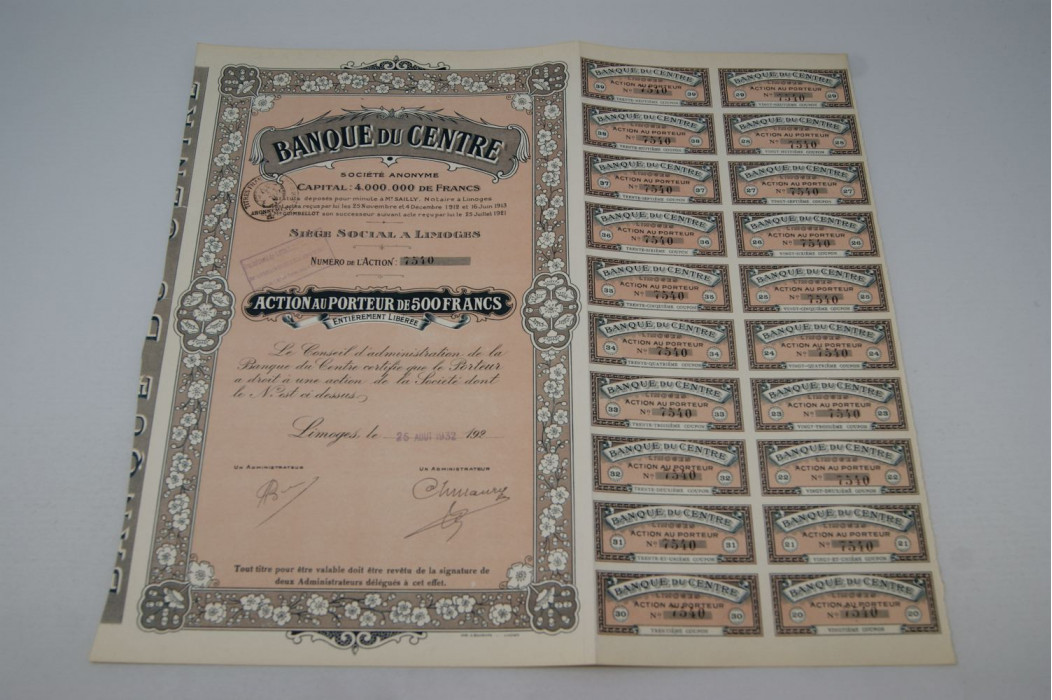 BANQUE DU CENTRE
SOCIÉTÉ ANONYME
CAPITAL: 4.000.000 DE FRANCS
déposés pour minute à Me SAILLY, Notaire à Limoges
reçus par lui les 22 Novembre et 4 Décembre 1912 et 16 Juin 1913
son successeur suivant acte reçu par lui le 25 Juillet 1921
SIÈGE SOCIAL A LIMOGES
NUMERO DE L'ACTION: 7540
ACTION AU PORTEUR DE 500 FRANCS
ENTIÈREMENT LIBÉRÉE
Le Conseil d'administration de la
Banque du Centre certifie que le Porteur
a droit à une action de la Société dont
le No est ci dessus
Limoges, le 25 AOUT 1932 192
UN ADMINISTRATEUR UN ADMINISTRATEUR
Tout titre pour être valable doit être revêtu de la signature de
deux Administrateurs délégués à cet effet.
BANQUE DU CENTRE
LIMOGES
ACTION AU PORTEUR
39 No 7540 39
TRENTE-NEUVIÈME COUPON
BANQUE DU CENTRE
LIMOGES
ACTION AU PORTEUR
29 No 7540 29
VINGT-NEUVIÈME COUPON
BANQUE DU CENTRE
LIMOGES
ACTION AU PORTEUR
38 No 7540 38
TRENTE-HUITIÈME COUPON
BANQUE DU CENTRE
LIMOGES
ACTION AU PORTEUR
28 No 7540 28
VINGT-HUITIÈME COUPON
BANQUE DU CENTRE
LIMOGES
ACTION AU PORTEUR
37 No 7540 37
TRENTE-SEPTIÈME COUPON
BANQUE DU CENTRE
LIMOGES
ACTION AU PORTEUR
27 No 7540 27
VINGT-SEPTIÈME COUPON
BANQUE DU CENTRE
LIMOGES
ACTION AU PORTEUR
36 No 7540 36
TRENTE-SIXIÈME COUPON
BANQUE DU CENTRE
LIMOGES
ACTION AU PORTEUR
26 No 7540 26
VINGT-SIXIÈME COUPON
BANQUE DU CENTRE
LIMOGES
ACTION AU PORTEUR
35 No 7540 35
TRENTE-CINQUIÈME COUPON
BANQUE DU CENTRE
LIMOGES
ACTION AU PORTEUR
25 No 7540 25
VINGT-CINQUIÈME COUPON
BANQUE DU CENTRE
LIMOGES
ACTION AU PORTEUR
34 No 7540 34
TRENTE-QUATRIÈME COUPON
BANQUE DU CENTRE
LIMOGES
ACTION AU PORTEUR
24 No 7540 24
VINGT-QUATRIÈME COUPON
BANQUE DU CENTRE
LIMOGES
ACTION AU PORTEUR
33 No 7540 33
TRENTE-TROISIÈME COUPON
BANQUE DU CENTRE
LIMOGES
ACTION AU PORTEUR
23 No 7540 23
VINGT-TROISIÈME COUPON
BANQUE DU CENTRE
LIMOGES
ACTION AU PORTEUR
32 No 7540 32
TRENTE-DEUXIÈME COUPON
BANQUE DU CENTRE
LIMOGES
ACTION AU PORTEUR
22 No 7540 22
VINGT-DEUXIÈME COUPON
BANQUE DU CENTRE
LIMOGES
ACTION AU PORTEUR
31 No 7540 31
TRENTE-ET-UNIÈME COUPON
BANQUE DU CENTRE
LIMOGES
ACTION AU PORTEUR
21 No 7540 21
VINGT-ET-UNIÈME COUPON
BANQUE DU CENTRE
LIMOGES
ACTION AU PORTEUR
30 No 7540 30
TRENTIÈME COUPON
BANQUE DU CENTRE
LIMOGES
ACTION AU PORTEUR
20 No 7540 20
VINGTIÈME COUPON